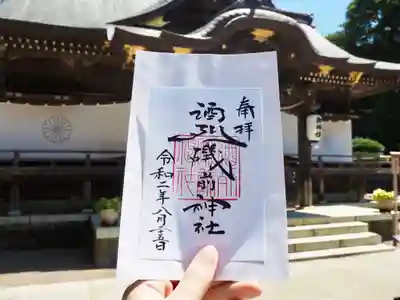 奉拝
酒列磯前神社
令和二年八月十五日